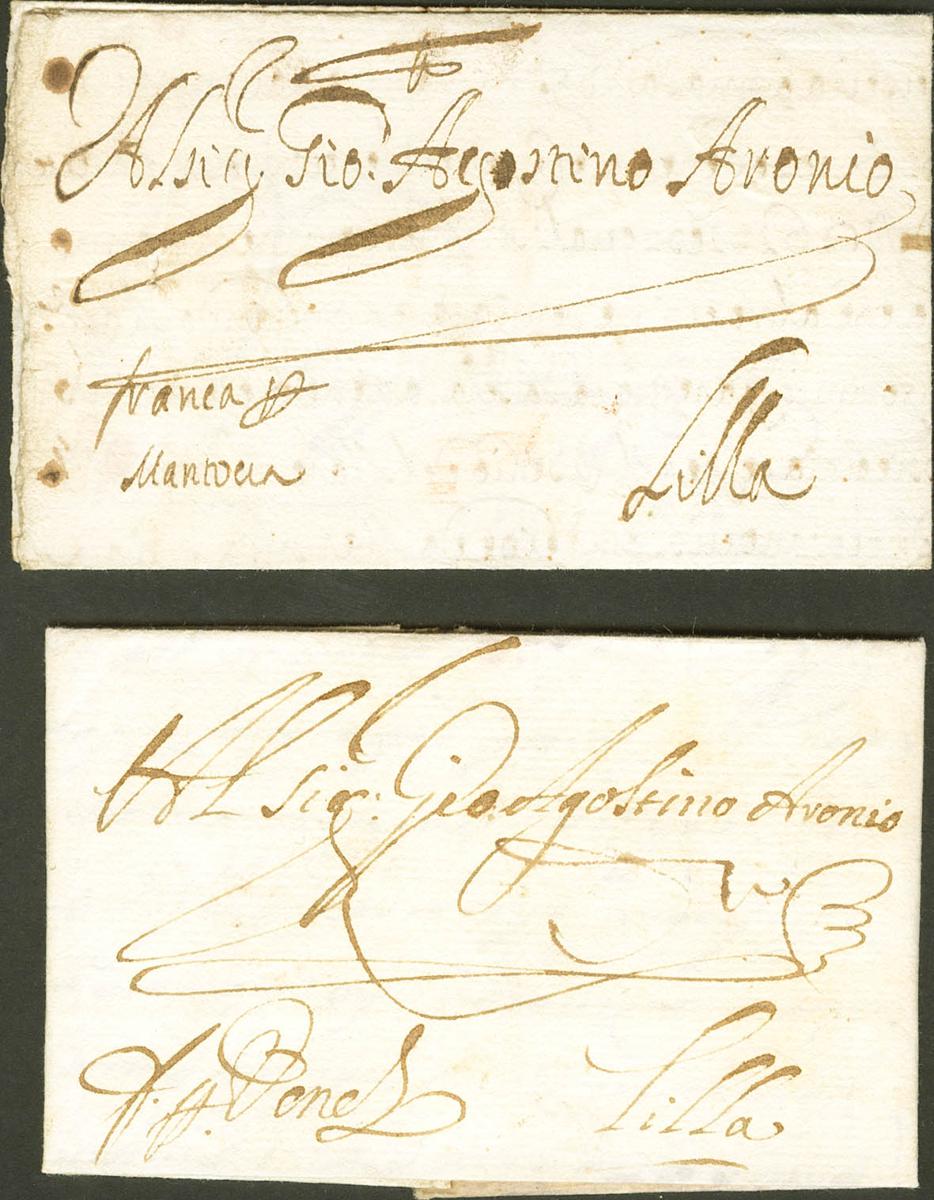 Al sig Gio: Agostino Avonio
franca pp
Mantova
Lilla
Al sig: Gio. Agostino Avonio
f. pp. Venez
Lilla